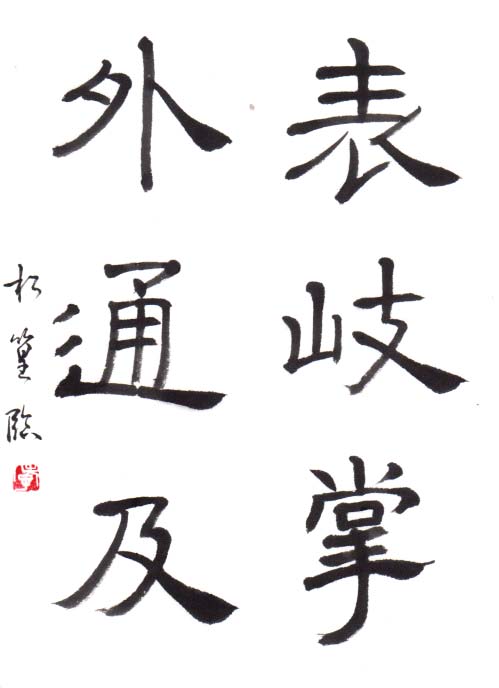 表岐掌
外通及
松篁臨